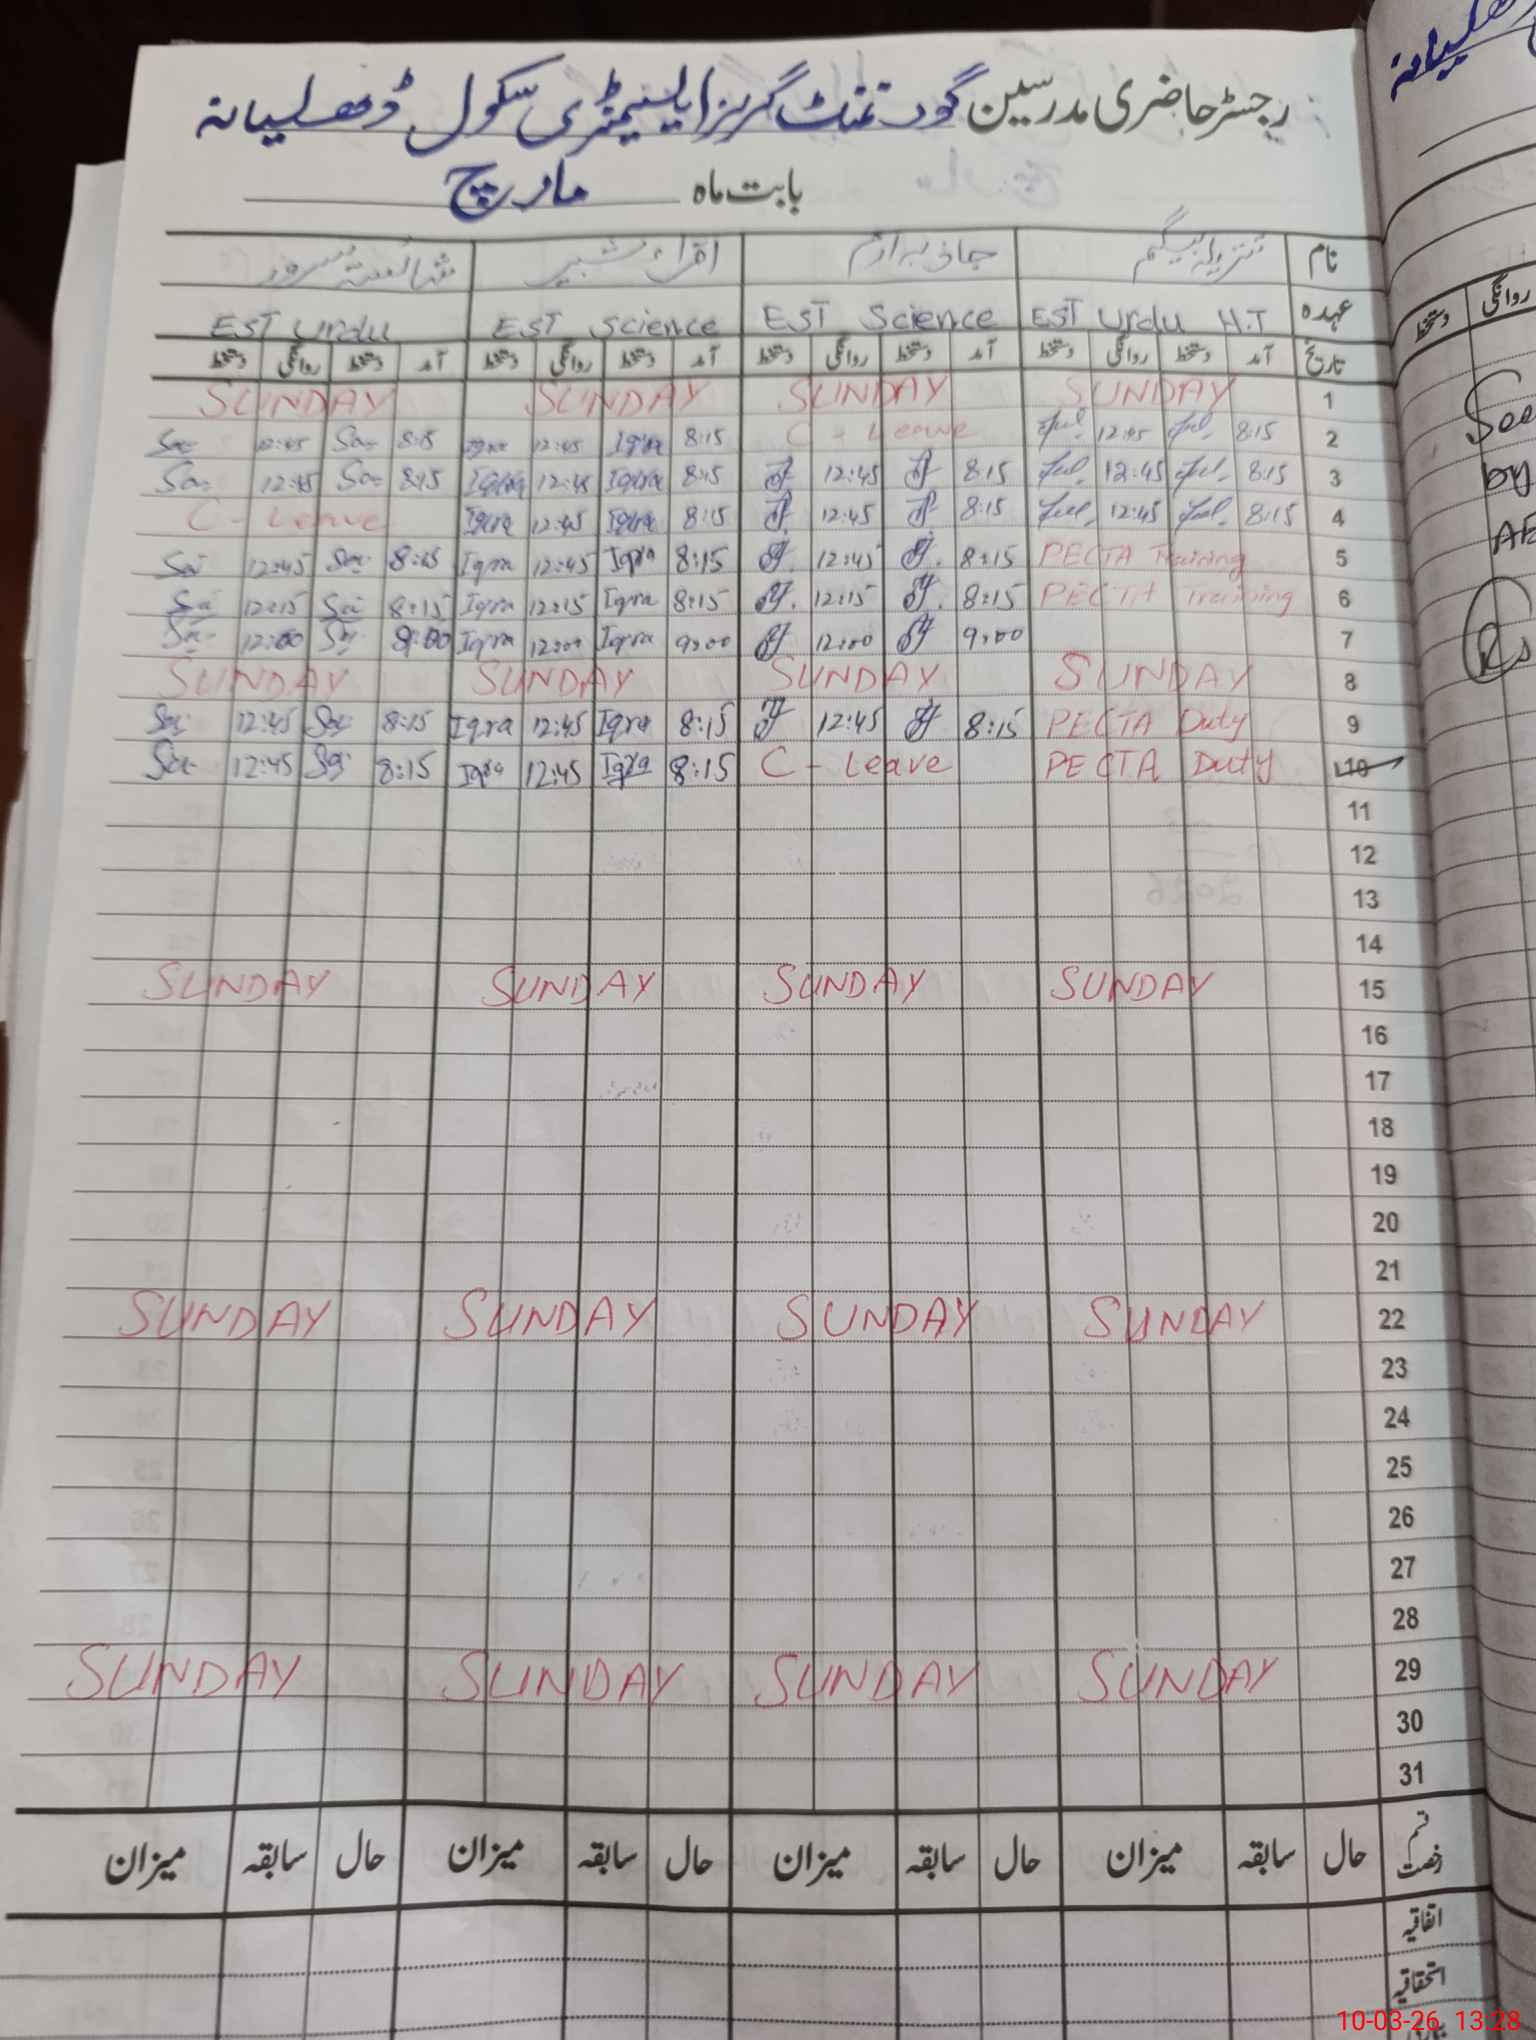 رجسٹر حاضری مدرسین گورنمنٹ گرلز ایلیمنٹری سکول ڈھلیانہ
بابت ماہ مارچ
نام تنزیلہ بیگم اقراء شبیر شائستہ سرور
عہدہ EST Urdu H.T EST Science EST Science EST Urdu
تاریخ آمد دستخط روانگی دستخط آمد دستخط روانگی دستخط آمد دستخط روانگی دستخط آمد دستخط روانگی دستخط
SUNDAY SUNDAY SUNDAY SUNDAY 1
12:45 8:15 Iqra 12:45 Iqra 8:15 C - Leave 12:45 8:15 2
12:45 8:15 Iqra 12:45 Iqra 8:15 12:45 8:15 12:45 8:15 3
C - Leave Iqra 12:45 Iqra 8:15 12:45 8:15 12:45 8:15 4
12:45 8:15 Iqra 12:45 Iqra 8:15 12:45 8:15 PECTA Training 5
12:15 8:15 Iqra 12:15 Iqra 8:15 12:15 8:15 PECTA Training 6
12:00 9:00 Iqra 12:00 Iqra 9:00 12:00 9:00 7
SUNDAY SUNDAY SUNDAY SUNDAY 8
12:45 8:15 Iqra 12:45 Iqra 8:15 12:45 8:15 PECTA Duty 9
12:45 8:15 Iqra 12:45 Iqra 8:15 C - Leave PECTA Duty 10
11
12
13
14
SUNDAY SUNDAY SUNDAY SUNDAY 15
16
17
18
19
20
21
SUNDAY SUNDAY SUNDAY SUNDAY 22
23
24
25
26
27
28
SUNDAY SUNDAY SUNDAY SUNDAY 29
30
31
قسم رخصت حال سابقہ میزان حال سابقہ میزان حال سابقہ میزان حال سابقہ میزان
اتفاقیہ
استحقاقیہ
روانگی دستخط
by
10-03-26 13:28